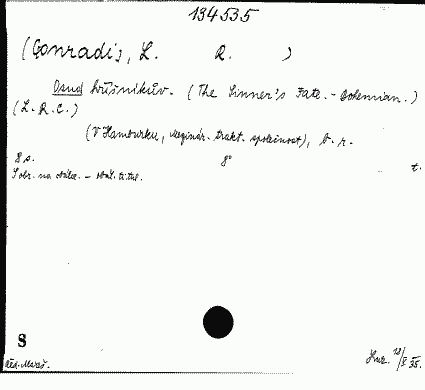 134535
(Conradi), L. R. )
Osud hříšníkův. (The Sinner's Fate. - Bohemian.)
(L. R. C.)
(V Hamburku, Meginár. trakt. společnost), b. r.
8 s. 8° t.
S obr. na obálce. - obál. titul.
S
12/X 35.